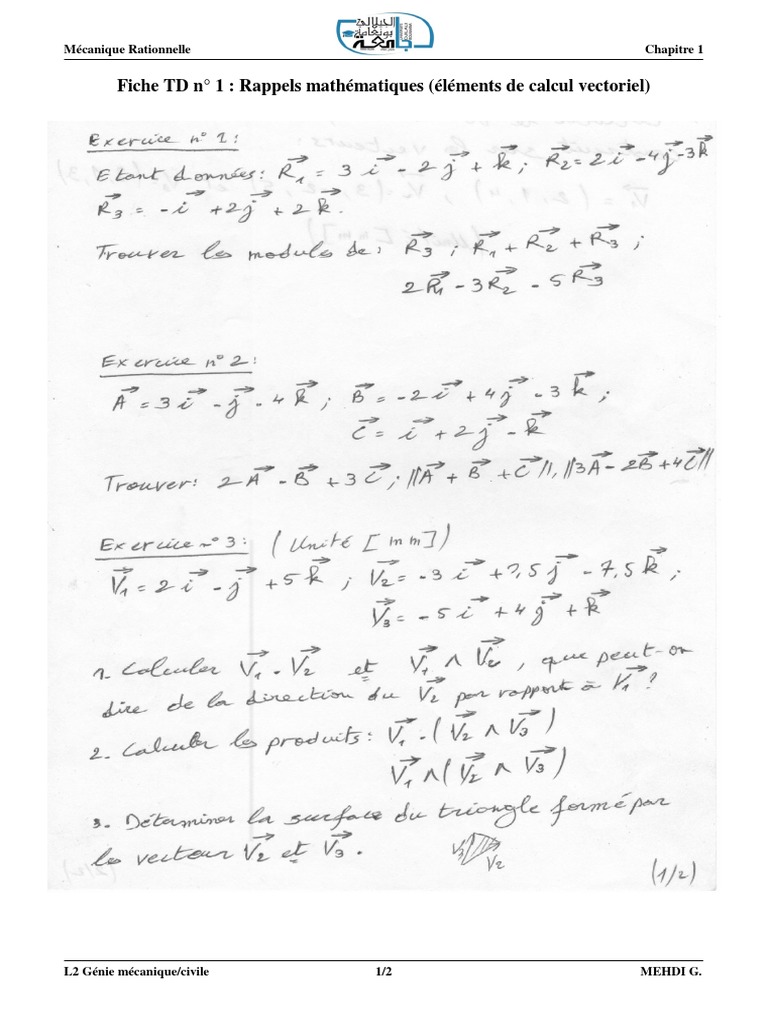 Mécanique Rationnelle
Chapitre 1
Fiche TD n° 1 : Rappels mathématiques (éléments de calcul vectoriel)
Exercice n° 1:
Etant données: R₁⃗ = 3 i⃗ - 2 j⃗ + k⃗ ; R₂⃗ = 2 i⃗ - 4 j⃗ - 3 k⃗
R₃⃗ = - i⃗ + 2 j⃗ + 2 k⃗.
Trouver les modules de: R₃⃗ ; R₁⃗ + R₂⃗ + R₃⃗ ;
2 R₁⃗ - 3 R₂⃗ - 5 R₃⃗
Exercice n° 2:
A⃗ = 3 i⃗ - j⃗ - 4 k⃗ ; B⃗ = -2 i⃗ + 4 j⃗ - 3 k⃗ ;
C⃗ = i⃗ + 2 j⃗ - k⃗
Trouver: 2 A⃗ - B⃗ + 3 C⃗ ; ||A⃗ + B⃗ + C⃗||, ||3A⃗ - 2B⃗ + 4C⃗||
Exercice n° 3: (Unité [mm])
V₁⃗ = 2 i⃗ - j⃗ + 5 k⃗ ; V₂⃗ = -3 i⃗ + j⃗ - 7,5 k⃗ ;
V₃⃗ = -5 i⃗ + 4 j⃗ + k⃗
1. Calculer V₁⃗ . V₂⃗ et V₁⃗ ∧ V₂⃗ , que peut-on
dire de la direction du V₂⃗ par rapport à V₁⃗ ?
2. Calculer les produits: V₁⃗ . (V₂⃗ ∧ V₃⃗)
V₁⃗ ∧ (V₂⃗ ∧ V₃⃗)
3. Déterminer la surface du triangle formé par
les vecteur V₂⃗ et V₃⃗ .
V₃
V₂
(1/2)
L2 Génie mécanique/civile
1/2
MEHDI G.